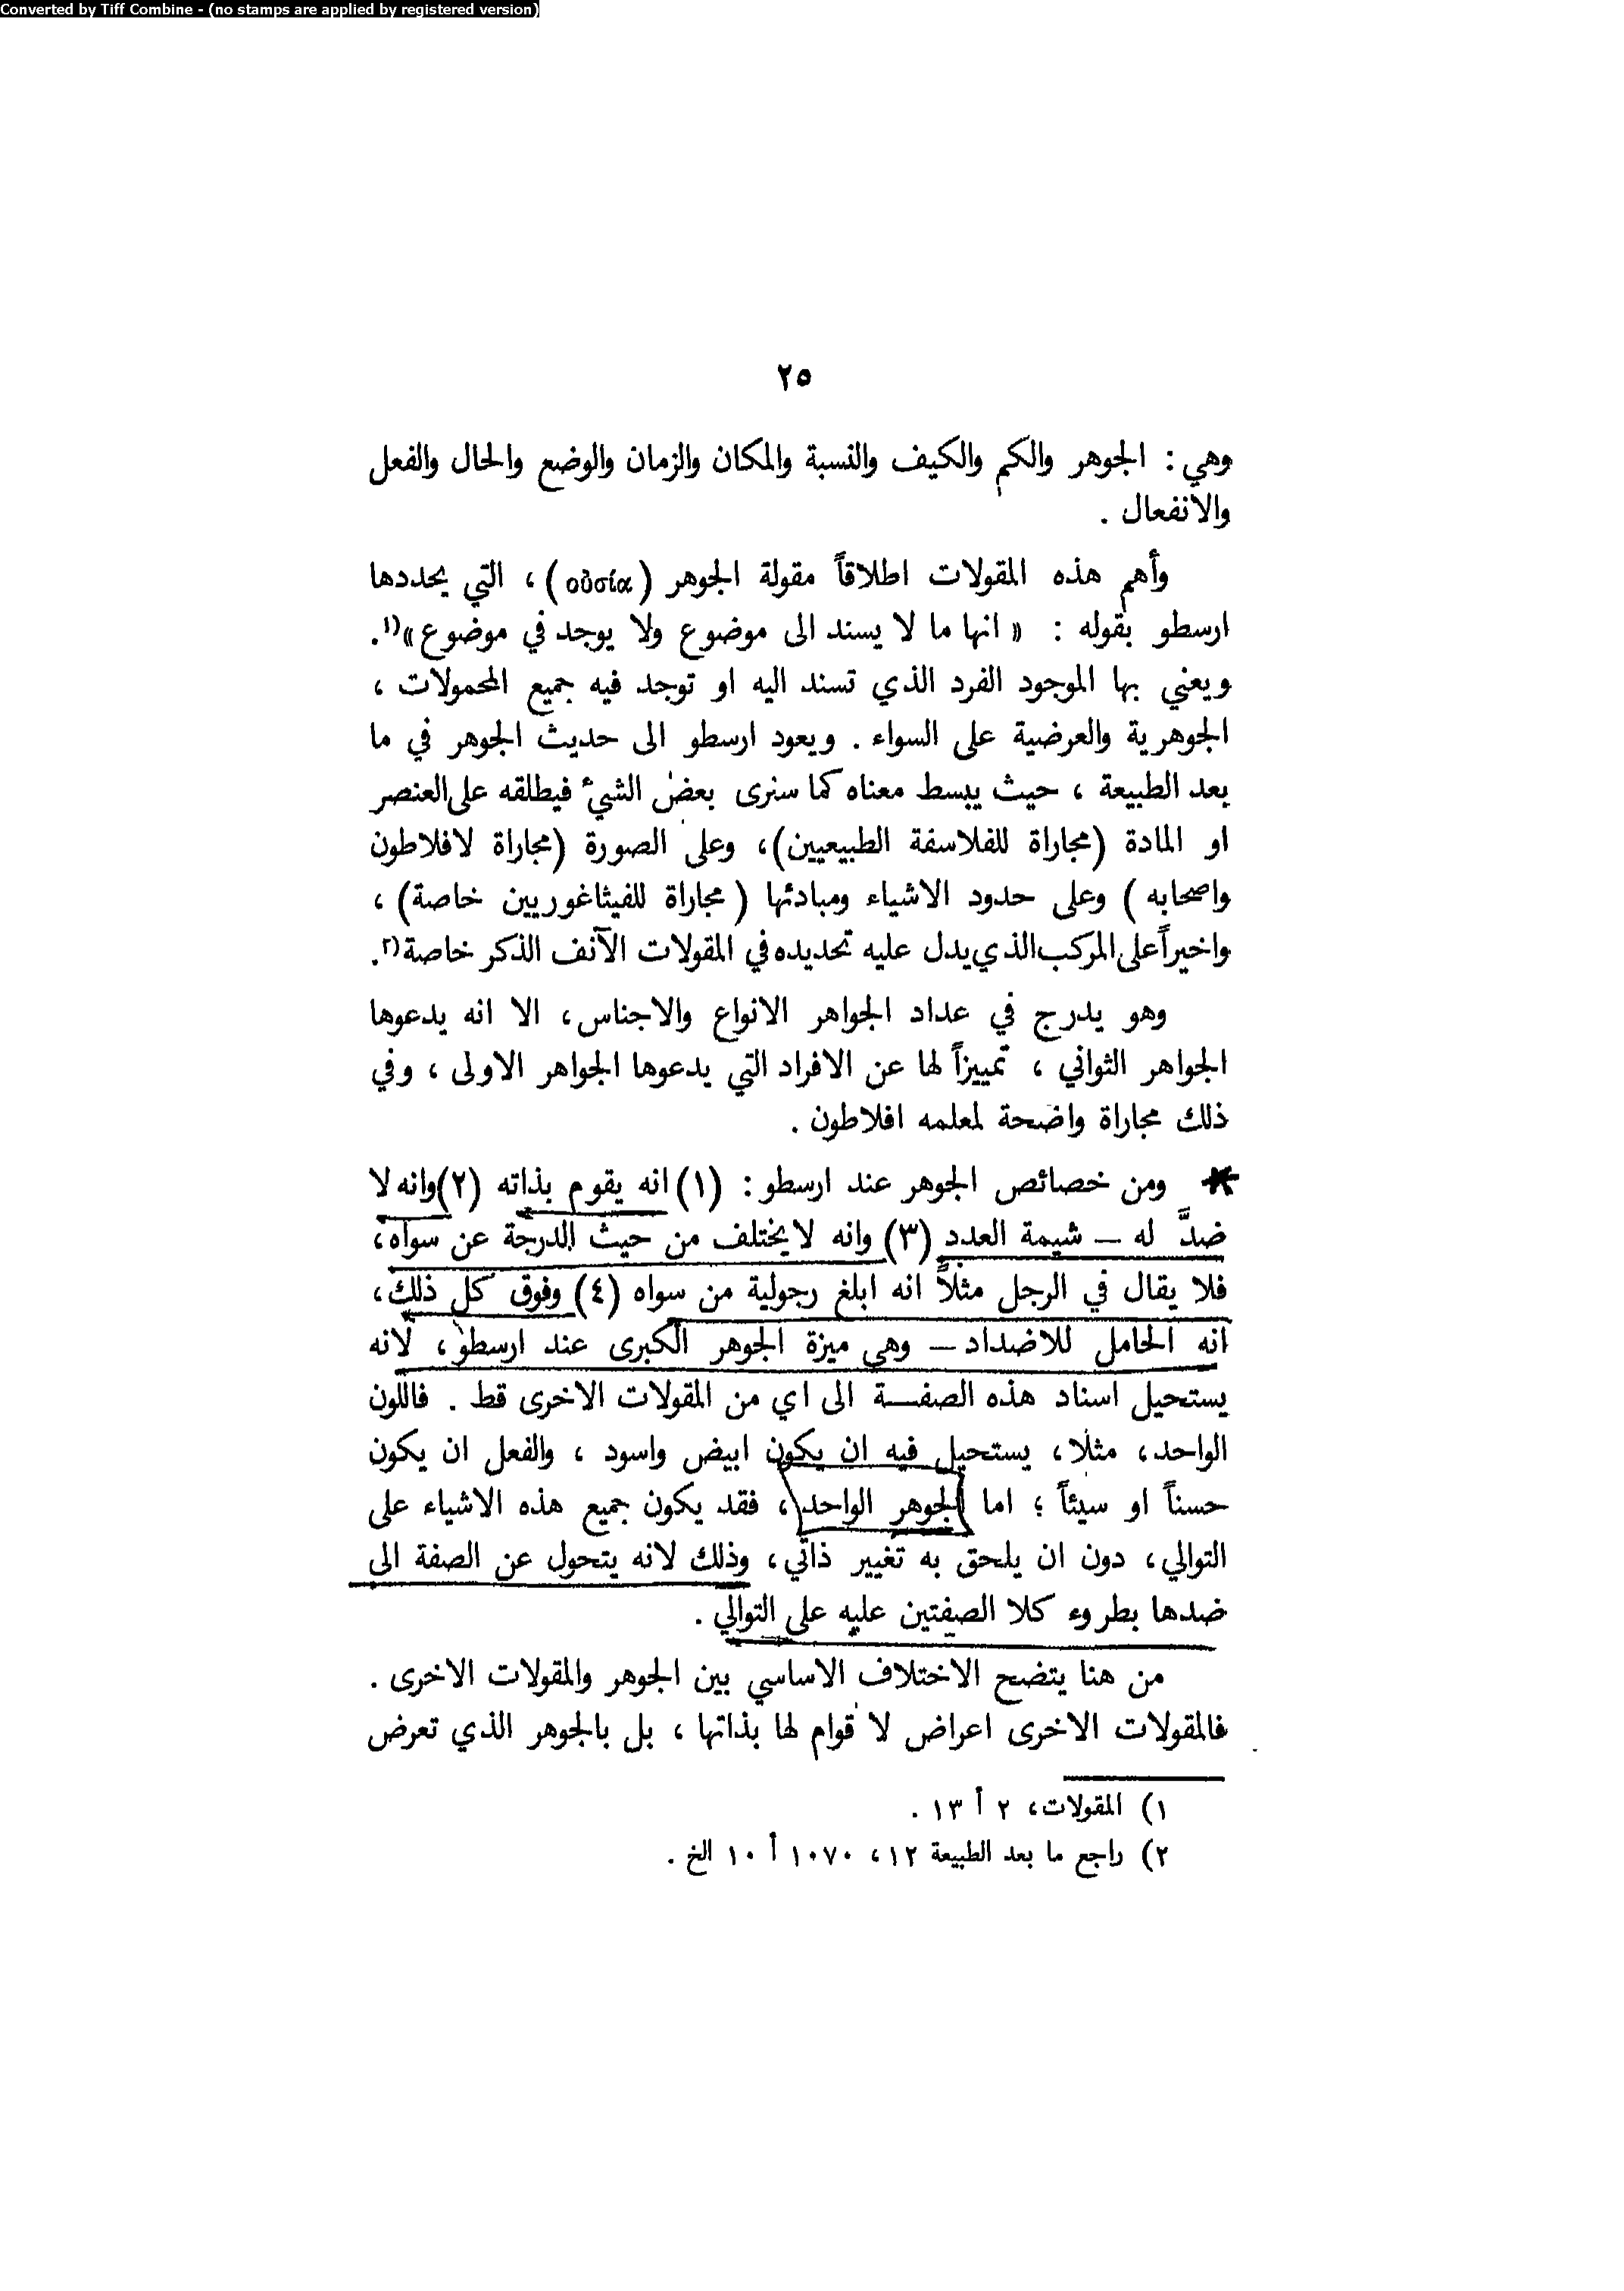 Converted by Tiff Combine - (no stamps are applied by registered version)
٢٥
وهي : الجوهر والكم والكيف والنسبة والمكان والزمان والوضع والحال والفعل
والانفعال .
وأهم هذه المقولات اطلاقاً مقولة الجوهر (οὐσία) ، التي يحددها
ارسطو بقوله : « انها ما لا يسند الى موضوع ولا يوجد في موضوع»(١.
ويعني بها الموجود الفرد الذي تسند اليه او توجد فيه جميع المحمولات ،
الجوهرية والعرضية على السواء . ويعود ارسطو الى حديث الجوهر في ما
بعد الطبيعة ، حيث يبسط معناه كما سنرى بعض الشيء فيطلقه على العنصر
او المادة (مجاراة للفلاسفة الطبيعيين)، وعلى الصورة (مجاراة لافلاطون
واصحابه ) وعلى حدود الاشياء ومبادئها ( مجاراة للفيثاغوريين خاصة) ،
واخيراً على المركب الذي يدل عليه تحديده في المقولات الآنف الذكر خاصة(٢.
وهو يدرج في عداد الجواهر الانواع والاجناس، الا انه يدعوها
الجواهر الثواني ، تمييزاً لها عن الافراد التي يدعوها الجواهر الاولى ، وفي
ذلك مجاراة واضحة لمعلمه افلاطون .
* ومن خصائص الجوهر عند ارسطو: (١) انه يقوم بذاته (٢) وانه لا
ضدَّ له – شيمة العدد (٣) وانه لا يختلف من حيث الدرجة عن سواه،
فلا يقال في الرجل مثلاً انه ابلغ رجولية من سواه (٤) وفوق كل ذلك،
انه الحامل للاضداد – وهي ميزة الجوهر الكبرى عند ارسطو، لانه
يستحيل اسناد هذه الصفة الى اي من المقولات الاخرى قط . فاللون
الواحد، مثلا، يستحيل فيه ان يكون ابيض واسود ، والفعل ان يكون
حسناً او سيئاً ؛ اما الجوهر الواحد، فقد يكون جميع هذه الاشياء على
التوالي، دون ان يلحق به تغيير ذاتي، وذلك لانه يتحول عن الصفة الى
ضدها بطروء كلا الصفتين عليه على التوالي .
من هنا يتضح الاختلاف الاساسي بين الجوهر والمقولات الاخرى .
فالمقولات الاخرى اعراض لا قوام لها بذاتها ، بل بالجوهر الذي تعرض
١) المقولات، ٢ أ ١٣ .
٢) راجع ما بعد الطبيعة ١٢، ١٠٧٠ أ ١٠ الخ .